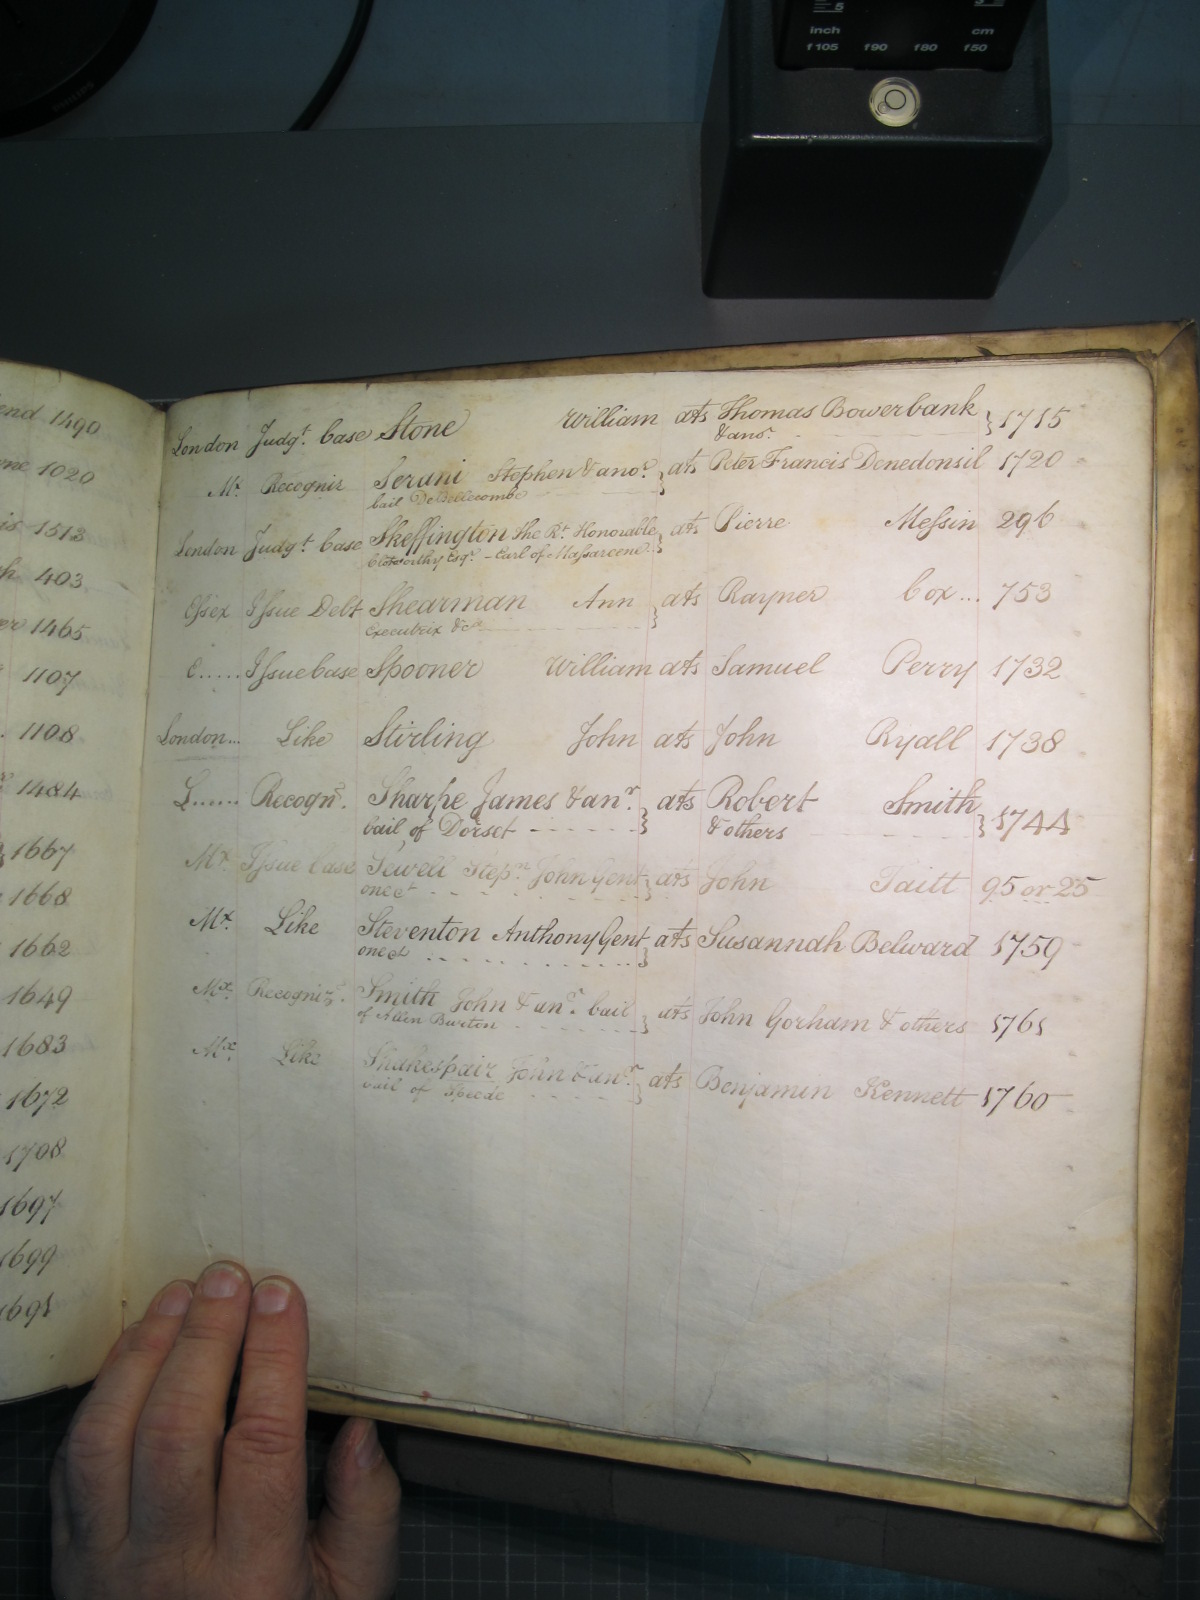 5
inch cm
f105 f90 f80 f50
PHILIPS
end 1490
1020
is 1513
h 403
er 1465
1107
1108
1484
1667
1668
1662
1649
1683
1672
1708
1697
1699
1691
London Judgt. Case Stone William ats Thomas Bowerbank } 1715
& anor.
Mx. Recogniz Serani Stephen & anor. } ats Peter Francis Denedonsil 1720
bail De Bellecombe
London Judgt. Case Skeffington the Rt. Honorable } ats Pierre Messin 296
Clotworthy Esqr. - Earl of Massareene
Essex Issue Debt Shearman Ann } ats Rayner Cox ... 753
Executrix &c
C..... Issue Case Spooner William ats Samuel Perry 1732
London... Like Stirling John ats John Ryall 1738
L...... Recognz. Sharpe James & anr. } ats Robert Smith } 1744
bail of Dorset & others
Mx. Issue Case Sewell Stepn. John Gent } ats John Taitt 95 or 25
one &c
Mx. Like Steventon Anthony Gent } ats Susannah Belward 1759
one &c
Mx. Recogniz. Smith John & anr. bail } ats John Gorham & others 1761
of Allen Burton
Mx. Like Shakespair John & anr. } ats Benjamin Kennett 1760
bail of Speede